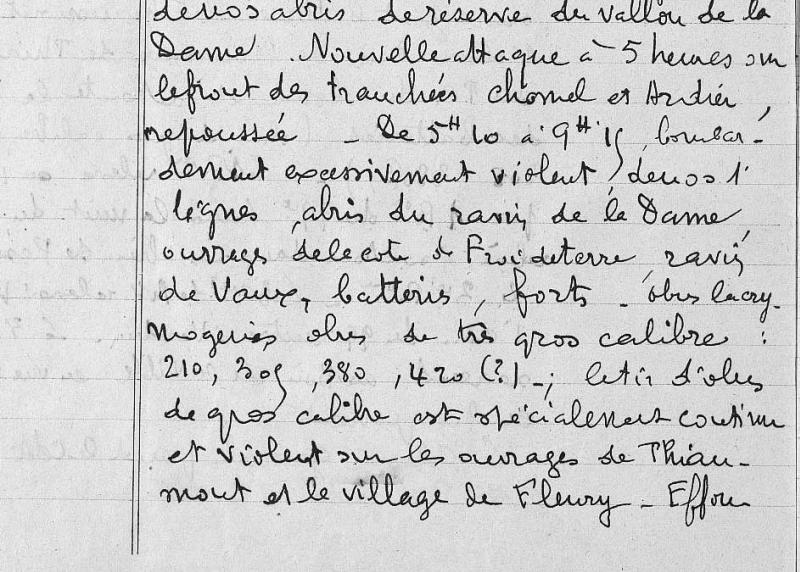 de nos abris de réserve du vallon de la
Dame. Nouvelle attaque à 5 heures sur
le front des tranchées Chomel et Andrieu,
repoussée - De 5H 10 à 9H 15, bombar-
dement excessivement violent, de nos 1e
lignes, abris du ravin de la Dame,
ouvrages de la cote de Froideterre, ravin
de Vaux, batteries, forts - obus lacry-
mogenes obus de très gros calibre :
210, 305, 380, 420 (?) -; le tir d'obus
de gros calibre est spécialement continu
et violent sur les ouvrages de Thiau-
mont et le village de Fleury - Effon